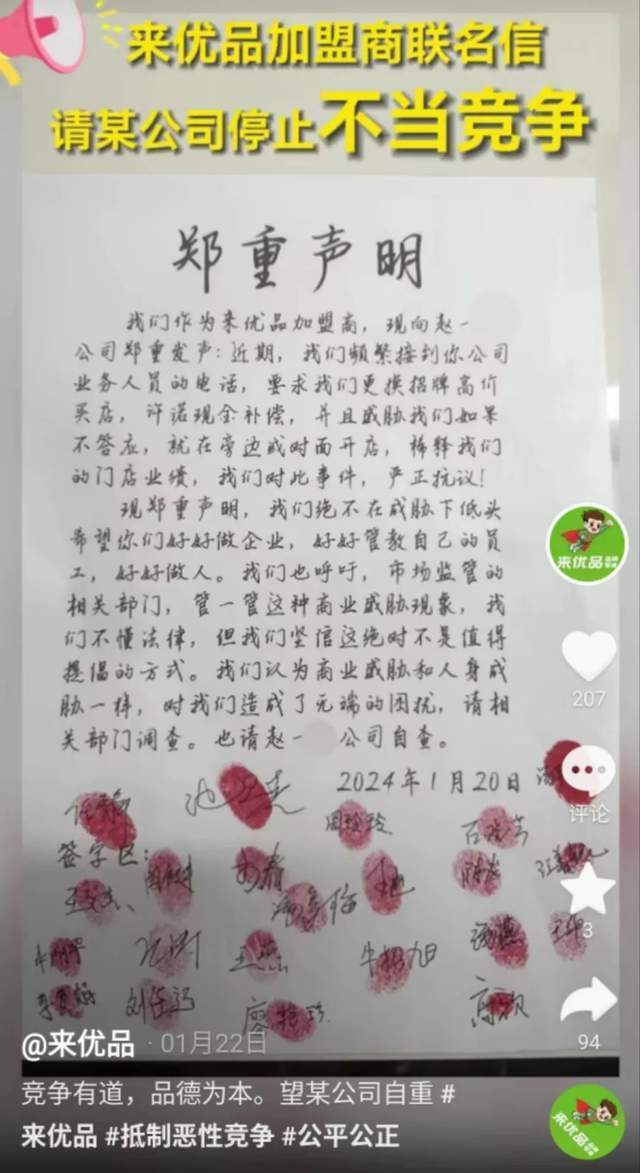 来优品加盟商联名信
请某公司停止不当竞争
郑重声明
我们作为来优品加盟商，现向赵一
公司郑重发声：近期，我们频繁接到你公司
业务人员的电话，要求我们更换招牌高价
买店，许诺现金补偿，并且威胁我们如果
不答应，就在旁边或对面开店，稀释我们
的门店业绩，我们对此事件，严正抗议！
现郑重声明，我们绝不在威胁下低头
希望你们好好做企业，好好管教自己的员
工，好好做人。我们也呼吁，市场监管的
相关部门，管一管这种商业威胁现象，我
们不懂法律，但我们坚信这绝对不是值得
提倡的方式。我们认为商业威胁和人身威
胁一样，对我们造成了无端的困扰，请相
关部门调查。也请赵一 公司自查。
2024年1月20日
签字区：
牛松旭
来优品
207
评论
3
94
@来优品 · 01月22日
竞争有道，品德为本。望某公司自重 #
来优品 #抵制恶性竞争 #公平公正
来优品